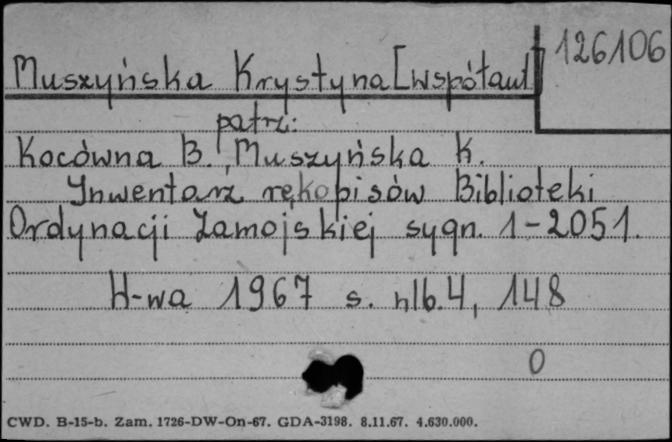 126106
Muszyńska Krystyna [współaut]
patrz:
Kocówna B., Muszyńska K.
Inwentarz rękopisów Biblioteki
Ordynacji Zamojskiej sygn. 1-2051.
W-wa 1967 s. nlb. 4, 148
0
CWD. B-15-b. Zam. 1726-DW-On-67. GDA-3198. 8.11.67. 4.630.000.